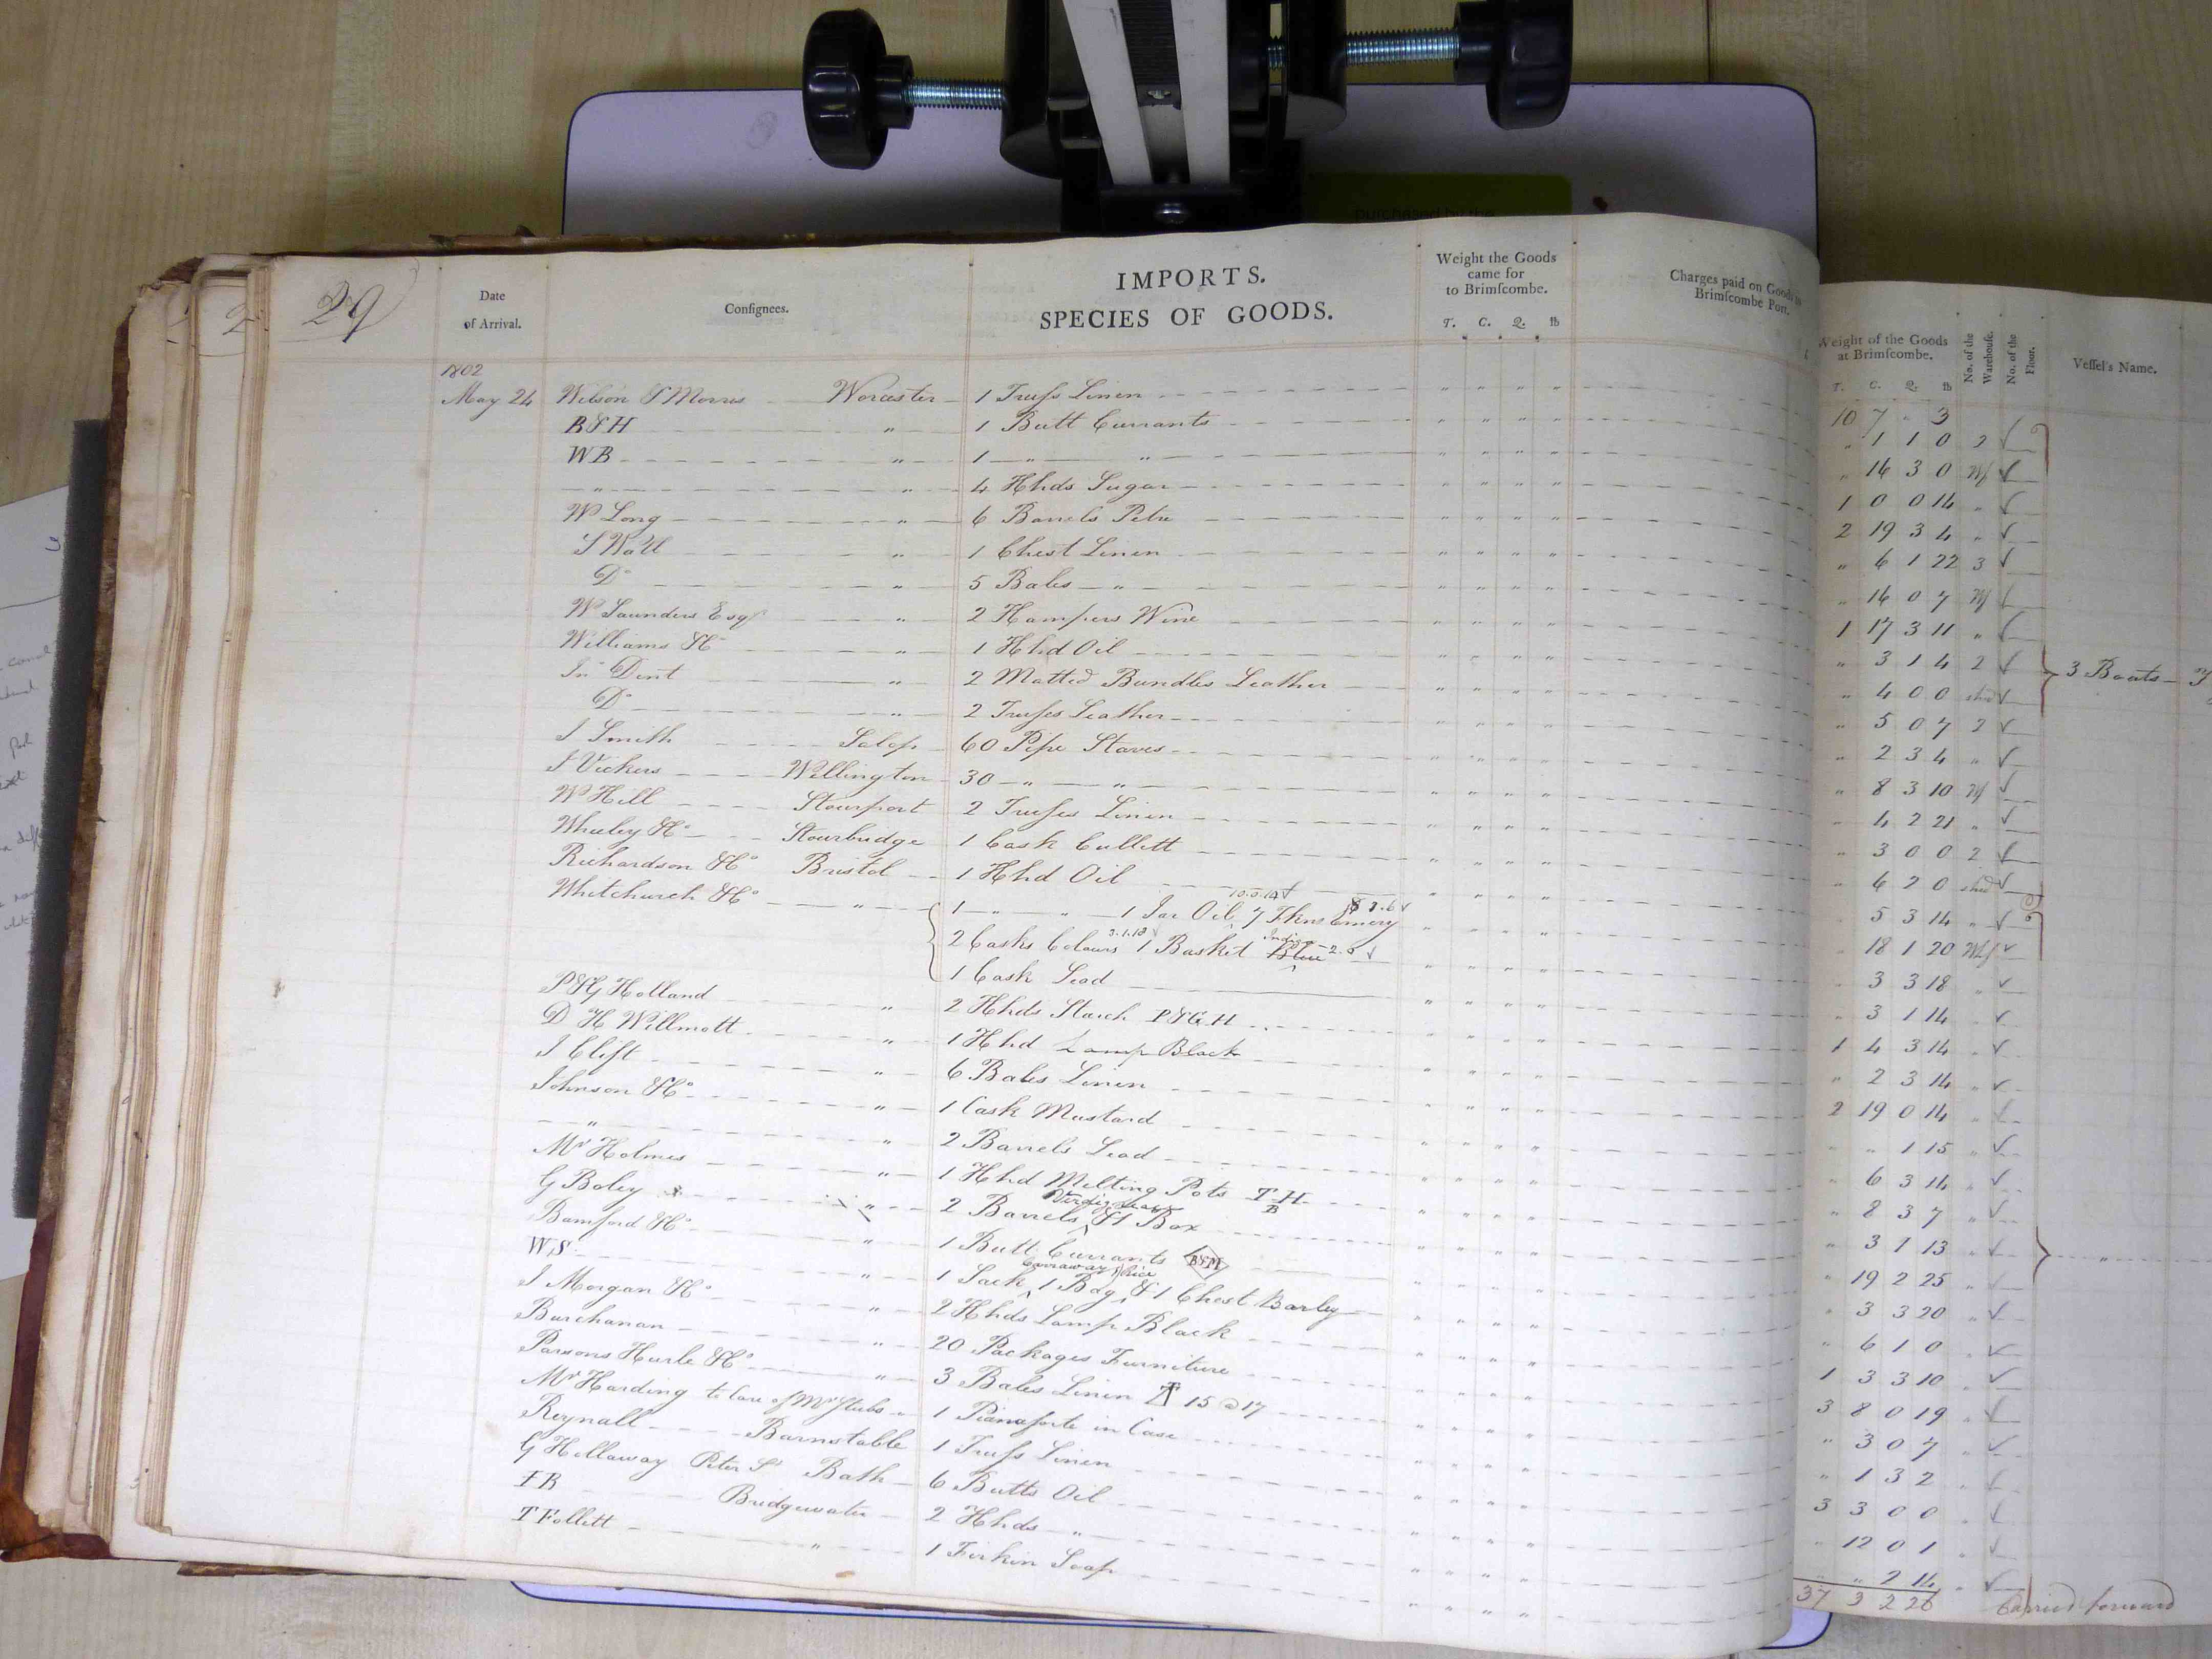 29
Date of Arrival.
Consignees.
IMPORTS.
SPECIES OF GOODS.
Weight the Goods came for to Brimſcombe.
T. C. Q. lb
Charges paid on Goods to Brimſcombe Port.
Weight of the Goods at Brimſcombe.
T. C. Q. lb
No. of the Warehouse.
No. of the Floor.
Veſſel's Name.
1802
10 7 " 3
May 24 Wilson & Morris Worcester 1 Truſs Linen " 1 1 0 2 ✓
B&H " 1 Butt Currants " 16 3 0 Wf ✓
WB " 1 " " 1 0 0 14 " ✓
" " 4 Hhds Sugar 2 19 3 4 " ✓
Wm Long " 6 Barrels Petre " 6 1 22 3 ✓
S Wall " 1 Chest Linen " 16 0 7 Wf ✓
Do " 5 Bales " 1 17 3 11 " ✓
Wm Saunders Esqr " 2 Hampers Wine " 3 1 4 2 ✓ 3 Boats
Williams & Co " 1 Hhd Oil " 4 0 0 shed ✓
Jn Dent " 2 Matted Bundles Leather " 5 0 7 2 ✓
Do " 2 Truſses Leather " 2 3 4 " ✓
J Smith Salop 60 Pipe Staves " 8 3 10 Wf ✓
J Vickers Wellington 30 " " " 4 2 21 " ✓
Wm Hill Stourport 2 Truſses Linen " 3 0 0 2 ✓
Wheeley & Co Stourbridge 1 Cask Cullett " 6 2 0 shed ✓
Richardson & Co Bristol 1 Hhd Oil " 5 3 14 " ✓
Whitchurch & Co " 1 " " 1 Jar Oil 7 Fkns Emery " 18 1 20 Whf ✓
2 Casks Colours 3.1.18 ✓ 1 Basket Blue Indigo " 3 3 18 " ✓
1 Cask Lead " 3 1 14 " ✓
P&G Holland " 2 Hhds Starch P&G.H 1 4 3 14 " ✓
D H Willmott " 1 Hhd Lamp Black " 2 3 14 " ✓
J Clift " 6 Bales Linen 2 19 0 14 " ✓
Johnson & Co " 1 Cask Mustard " " 1 15 " ✓
" " 2 Barrels Lead " 6 3 14 " ✓
Mr Holmes " 1 Hhd Melting Pots TH B " 8 3 7 " ✓
G Boley " 2 Barrels Verdigrease & 1 Box " 3 1 13 " ✓ "
Bamford & Co " 1 Butt Currants B&M " 19 2 25 " ✓
WS " 1 Sack Carraway 1 Bag Rice & 1 Chest Barley " 3 3 20 " ✓
J Morgan & Co " 2 Hhds Lamp Black " 6 1 0 " ✓
Buchanan " 20 Packages Furniture 1 3 3 10 " ✓
Parsons Hurle & Co " 3 Bales Linen 15 @ 17 3 8 0 19 " ✓
Mr Harding to Care of Mr Stubs " 1 Pianaforte in Case " 3 0 7 " ✓
Reynall Barnstable 1 Truſs Linen " 1 3 2 " ✓
G Hollaway Peter St Bath 6 Butts Oil 3 3 0 0 " ✓
FB Bridgewater 2 Hhds " " 12 0 1 " ✓
T Follett " 1 Firkin Soap " " 2 14 " ✓
37 3 2 26 Carried forward